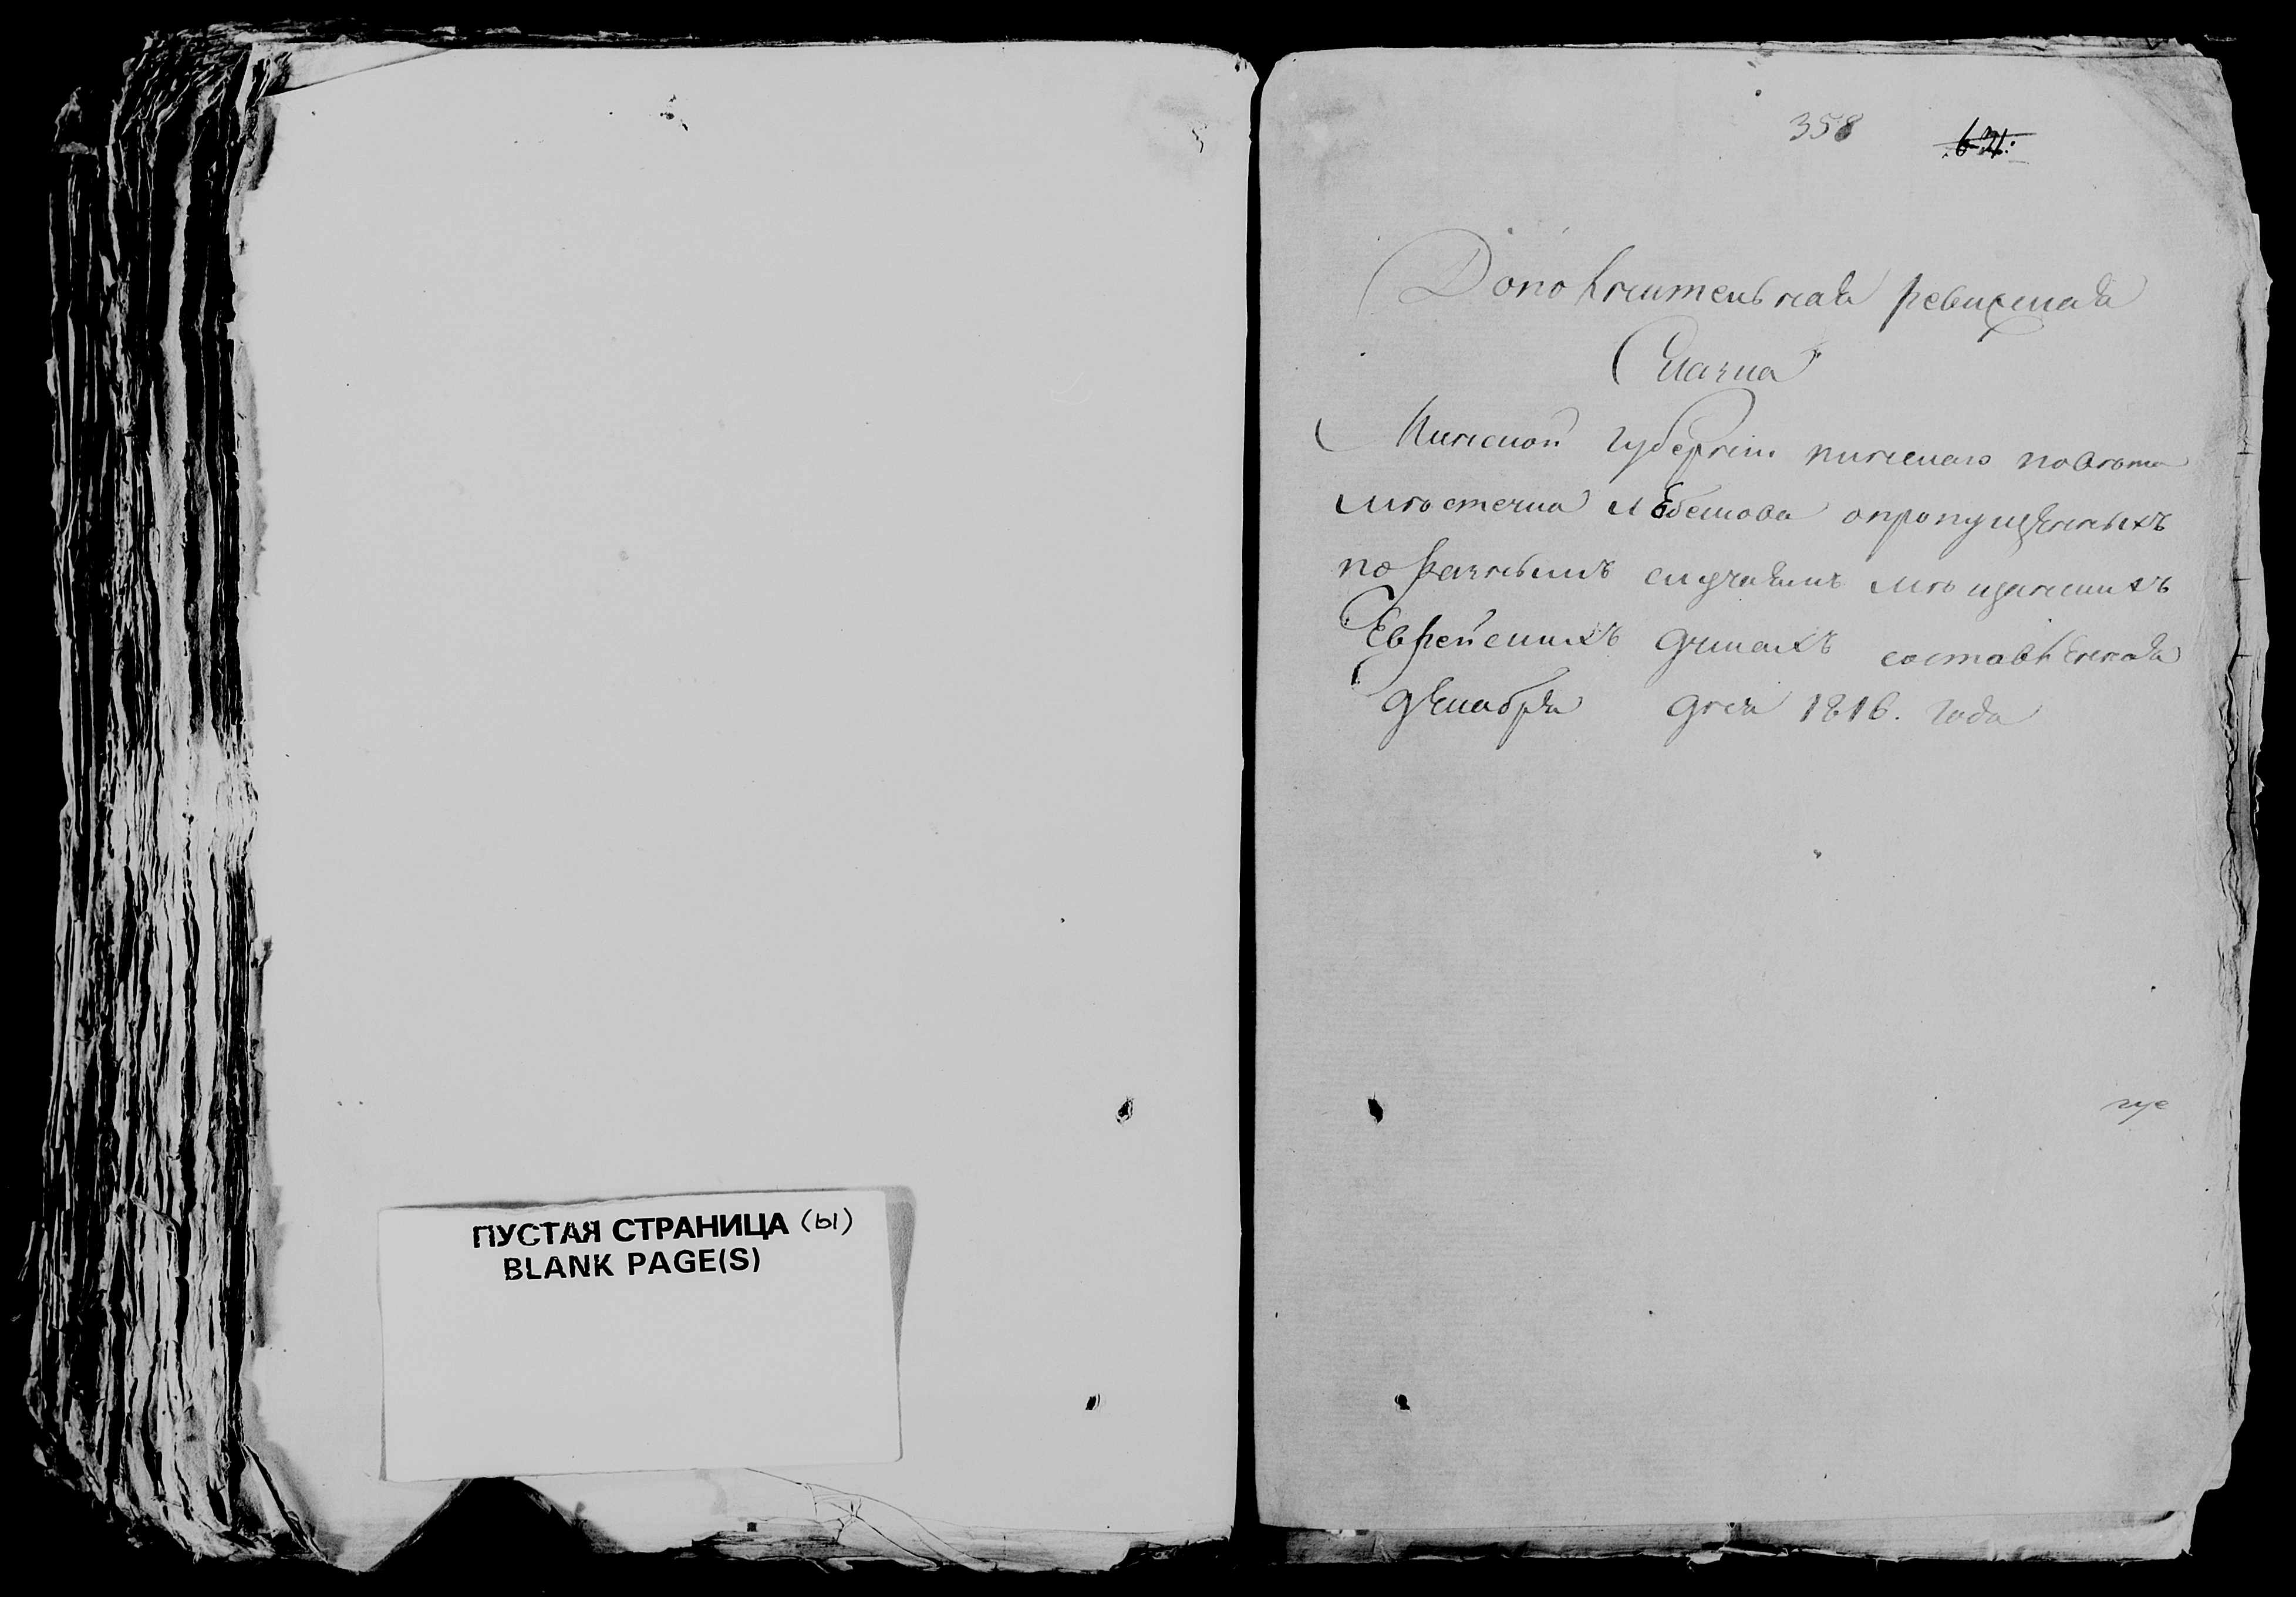 ПУСТАЯ СТРАНИЦА (Ы)
BLANK PAGE(S)
358
Дополнительная ревизская
Сказка
Минской губернiи пинскаго повѣта
мѣстечка Любешова опропущенныхъ
по разнымъ случаямъ мѣщанскихъ
Еврейскихъ душахъ составленная
декабря дня 1816. года